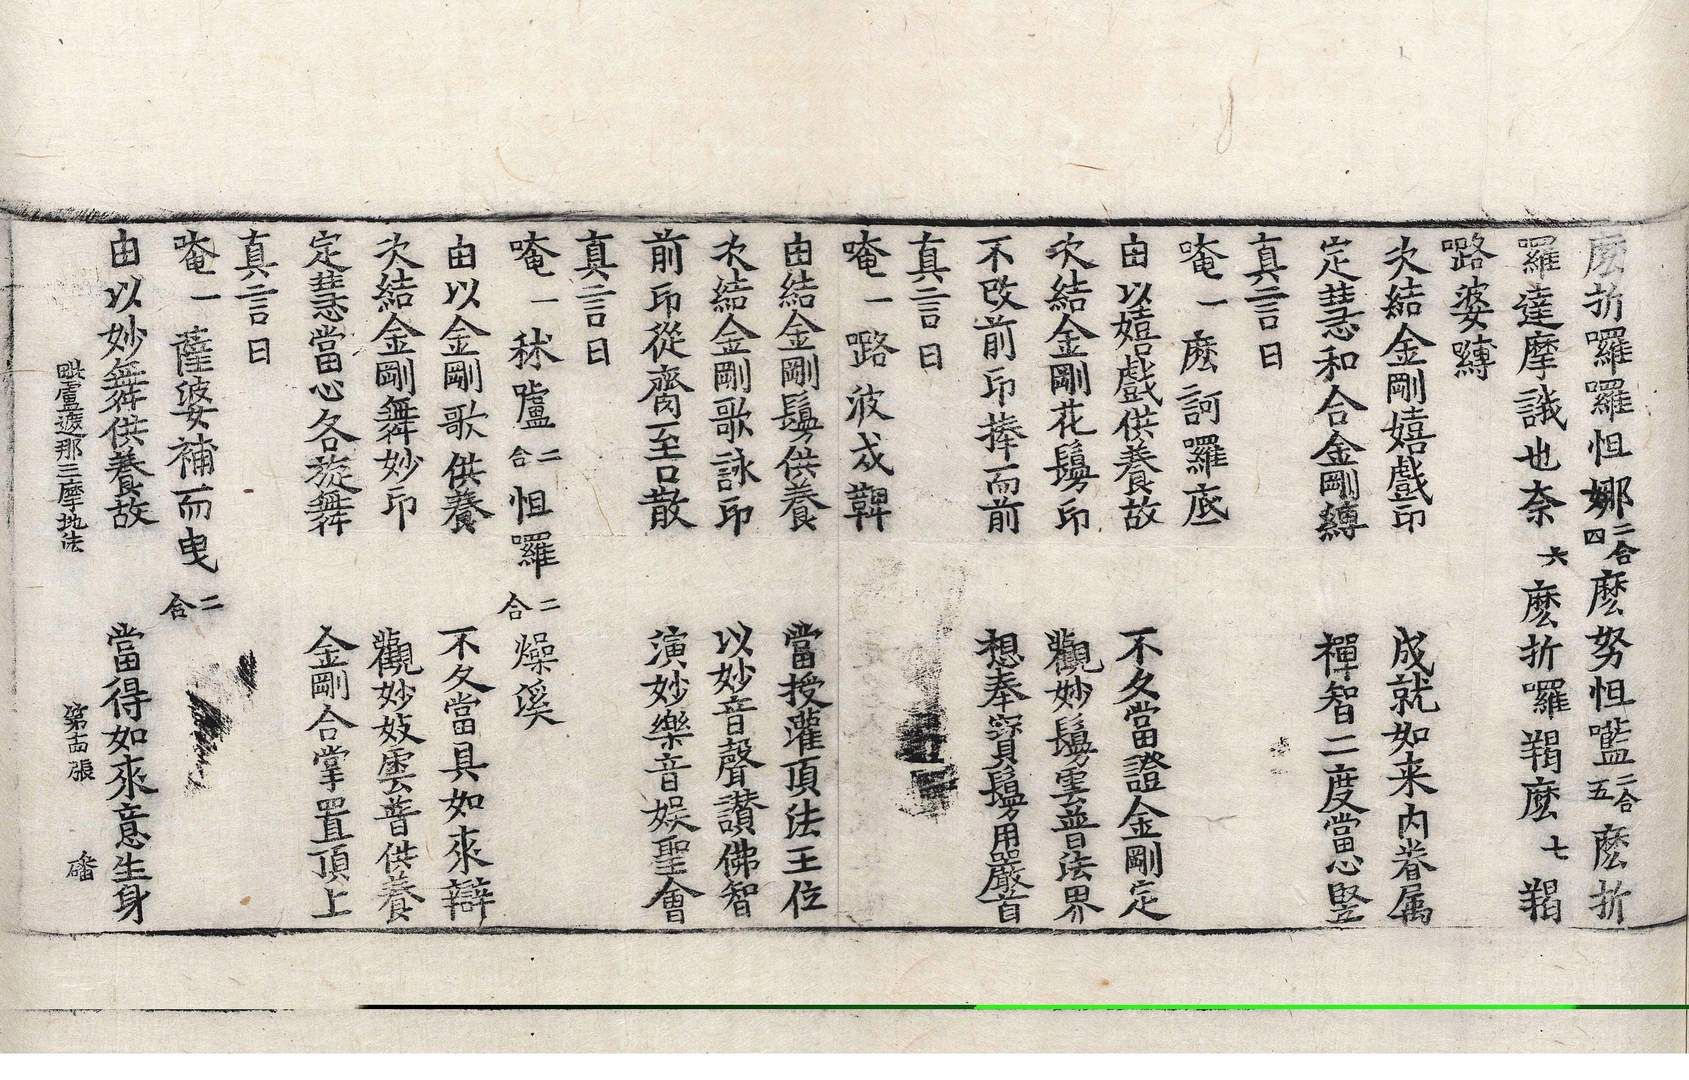 麽折囉囉怛娜二合四麽努怛㘕二合五麽折
羅達摩誐也奈六麽折囉羯麽七羯
嚕婆嚩
次結金剛嬉戲印　成就如来内眷属
定慧和合金剛縛　禪智二度當心竪
真言曰
唵一麽訶羅底
由以嬉戲供養故　不久當證金剛定
次結金剛花鬘印　觀妙鬘雲普法界
不改前印捧而前　想奉寳鬘用嚴首
真言曰
唵一嚕波戍鞞
由結金剛鬘供養　當授灌頂法王位
次結金剛歌詠印　以妙音聲讃佛智
前印從齎至口散　演妙樂音娱聖會
真言曰
唵一秫嚧二合怛囉二合燥溪
由以金剛歌供養　不久當具如來辯
次結金剛舞妙印　觀妙妓雲普供養
定慧當心各旋舞　金剛合掌置頂上
真言曰
唵一薩婆補而曳二合
由以妙舞供養故　當得如來意生身
毗盧遮那三摩地法　第十四張　磻